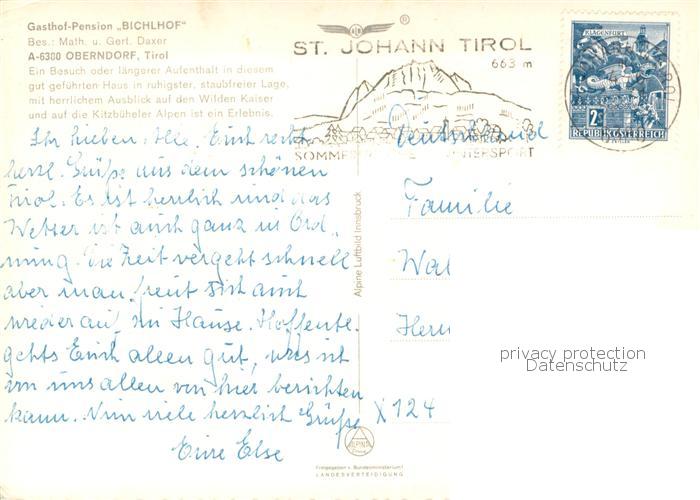 Gasthof-Pension „BICHLHOF"
Bes.: Math. u. Gert. Daxer
A-6380 OBERNDORF, Tirol
Ein Besuch oder längerer Aufenthalt in diesem
gut geführten Haus in ruhigster, staubfreier Lage,
mit herrlichem Ausblick auf den Wilden Kaiser
und auf die Kitzbüheler Alpen ist ein Erlebnis.
®
ST. JOHANN TIROL
663 m
SOMMER WINTERSPORT
KLAGENFURT
2S
REPUBLIK ÖSTERREICH
Ihr lieben Alle, Euch recht
herzl. Grüße aus dem schönen
Tirol. Es ist herrlich und das
Wetter ist auch ganz in Ord„
nung. Die Zeit vergeht schnell
aber man freut sich auch
wieder auf zu Hause. Hoffentl.
gehts Euch allen gut, was ich
von uns allen von hier berichten
kann. Nun viele herzlich Grüße
Eure Else
Alpine Luftbild Innsbruck
Deutschland
Familie
Wal
Herr
X 124
privacy protection
Datenschutz
ALPINE
Freigegeben v. Bundesministerium f.
LANDESVERTEIDIGUNG